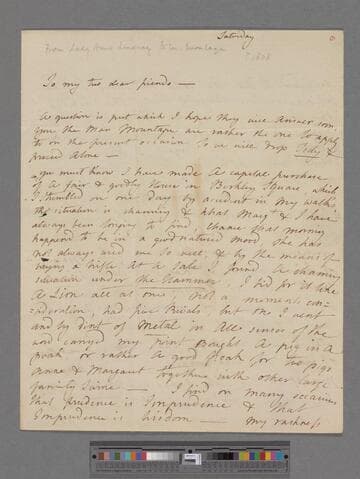 Saturday
From Lady Anne Lindsay to
1808
To my two dear friends —
A question is put which I hope they will answer soon
you the Man Mountain are rather the one to apply
to on the present occasion so we will drop &
proceed alone —
you must know I have made a capital purchase
of a fair & goodly House in Berkley Square, which
I stumbled on one day by accident in my walks
the situation is charming & what Margt & I have
always been longing to find, chance that morning
happend to be in a good natured mood she has
not always used me so well, & by the means of
at a Sale I found a charming
situation under the Hammer, I bid for it like
a Lion all at once, not a moments con-
sideration, had five Rivals, but on I went
and by dint of Metal in all senses of the
word carryd my point Bought a pig in a
Poak or rather a good Poak for two pigs
Anne & Margaret together with other large
families Same — I find on many occasions
that prudence is Imprudence & that
Imprudence is Wisdom — My rashness